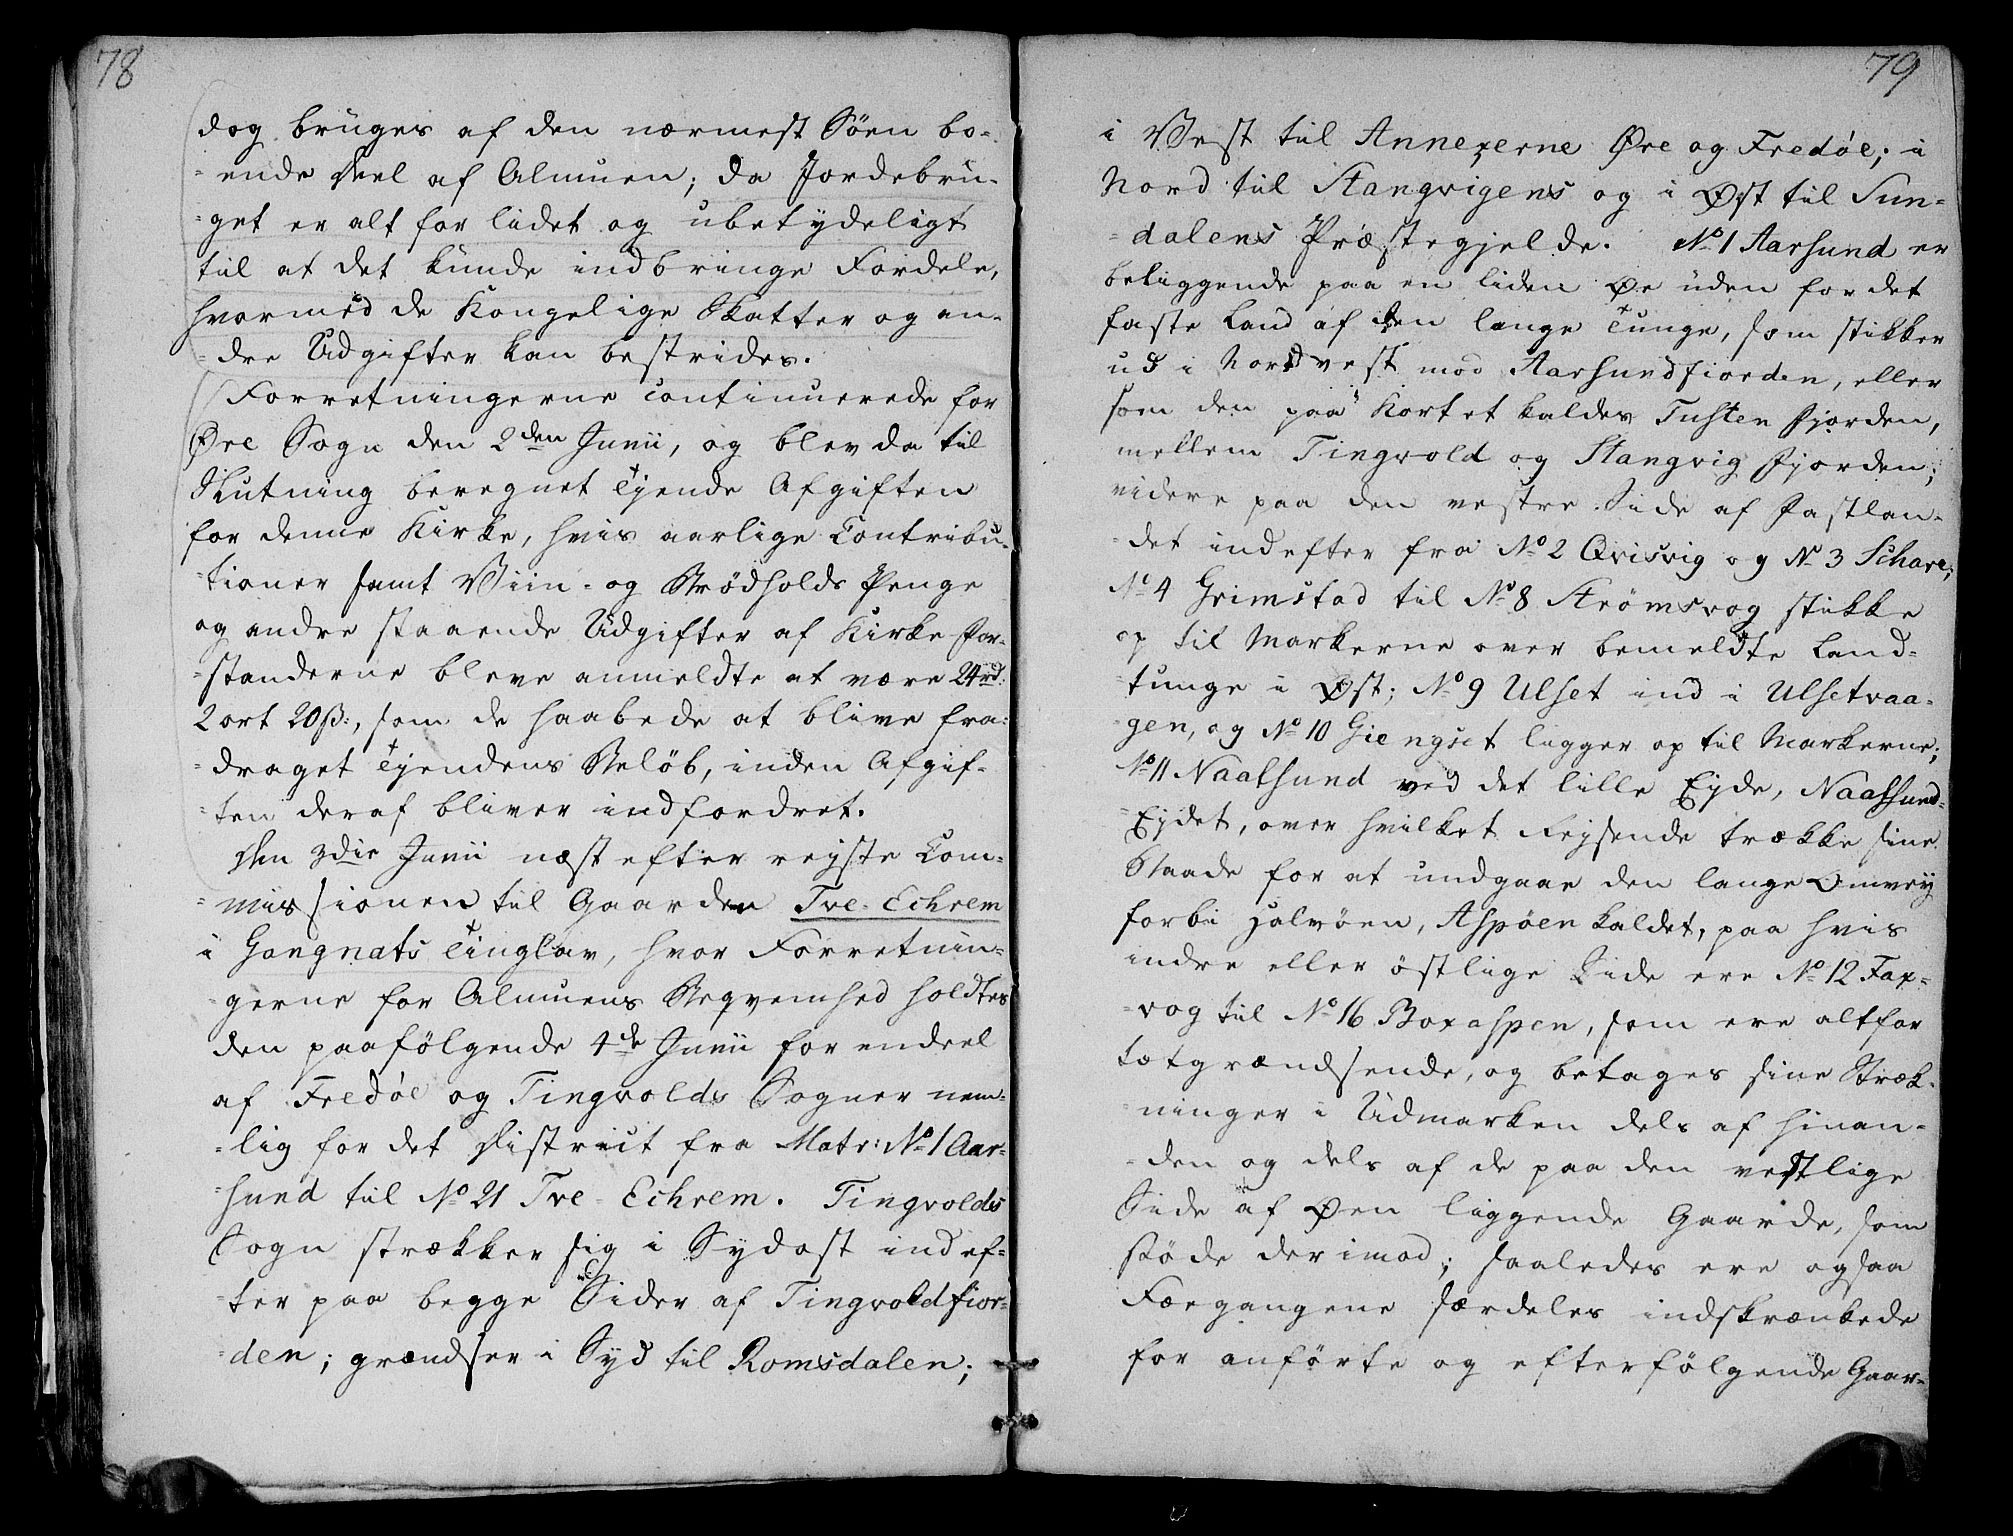 78
dog bruges af den nærmest Söen bo-
-ende Deel af Almuen; da Jordebru-
-get er alt for lidet og ubetydeligt
til at det kunde indbringe Fordele,
hvormed de Kongelige Skatter og an-
-dre Udgifter kan bestrides.
Forretningerne continuerede for
Øre Sogn den 2den Junii, og blev da til
Slutning beregnet Tjende Afgiften
for denne Kirke, hvis aarlige Contribu-
-tioner samt Viin- og Brödholds Penge
og andre staaende Udgifter af Kirke For-
-standerne bleve anmeldte at være 24 rd:
2 ort 20 ß:, som de haabede at blive fra-
-draget Tjendens Belöb, inden Afgif-
-ten deraf bliver indfordret.
Den 3die Junii næst efter rejste Com-
-missionen til Gaarden Tve-Echrem
i Gangnats Tinglav, hvor Forretnin-
-gerne for Almuens Beqvemhed holdtes
den paafölgende 4de Junii for endeel
af Fredøe og Tingvolds Sogner nem-
-lig for det District fra Matr: No 1 Aar-
-sund til No 21 Tve-Echrem. Tingvolds
Sogn strækker sig i Sydost indef-
-ter paa begge Sider af Tingvoldfior-
-den; grændser i Syd til Romsdalen;
79
i Vest til Annexerne Øre og Fredøe; i
Nord til Stangvigens og i Øst til Sun-
-dalens Præstegjelde. No 1 Aarsund er
beliggende paa en liden Øe uden for det
faste Land af den lange Tunge, som stikker
ud i Nordvest mod Aarsundfiorden, eller
som den paa Kortet kaldes Tusten Fjorden,
mellem Tingvold og Stangvig Fjorden;
videre paa den vestre Side af Fastlan-
-det indefter fra No 2 Qvisvig og No 3 Schare;
No 4 Grimstad til No 8 Strömsvog stikke
op til Markerne over bemeldte Land-
-tunge i Øst; No 9 Ulset ind i Ulsetvaa-
-gen, og No 10 Giengset ligger op til Markerne;
No 11 Naalsund ved det lille Eyde, Naalsund-
-Eydet, over hvilket Rejsende trække sine
Baade for at undgaae den lange Omvej
forbi Halvöen, Aspöen kaldet, paa hvis
indre eller östlige Side ere No 12 Fax-
-vog til No 16 Boxaspen, som ere altfor
tætgrændsende, og betages sine Stræk-
-ninger i Udmarken dels af hinan-
-den og dels af de paa den vestlige
Side af Øen liggende Gaarde, som
støde derimod; saaledes ere ogsaa
Færgangene særdeles indskrænkede
for anförte og efterfölgende Gaar-